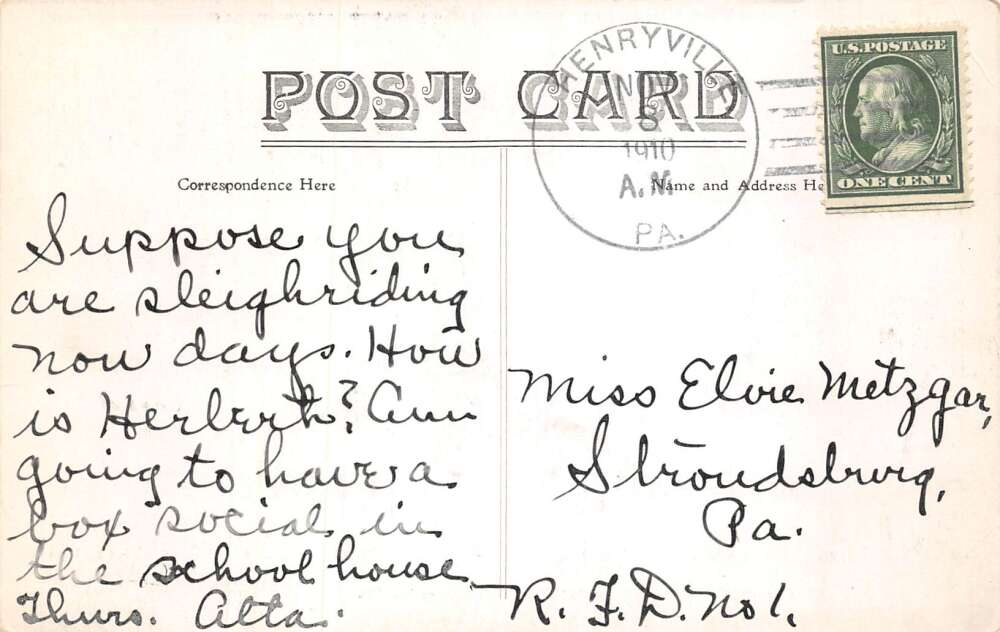 POST CARD
HENRYVILLE
NOV
8
1910
A.M.
PA.
U.S. POSTAGE
ONE CENT
Correspondence Here
Name and Address He
Suppose you
are sleighriding
now days. How
is Herberth? Am
going to have a
box social in
the school house
Thurs. Alta.
Miss Elvie Metzgar,
Stroudsburg,
Pa.
R. F. D. No 1.